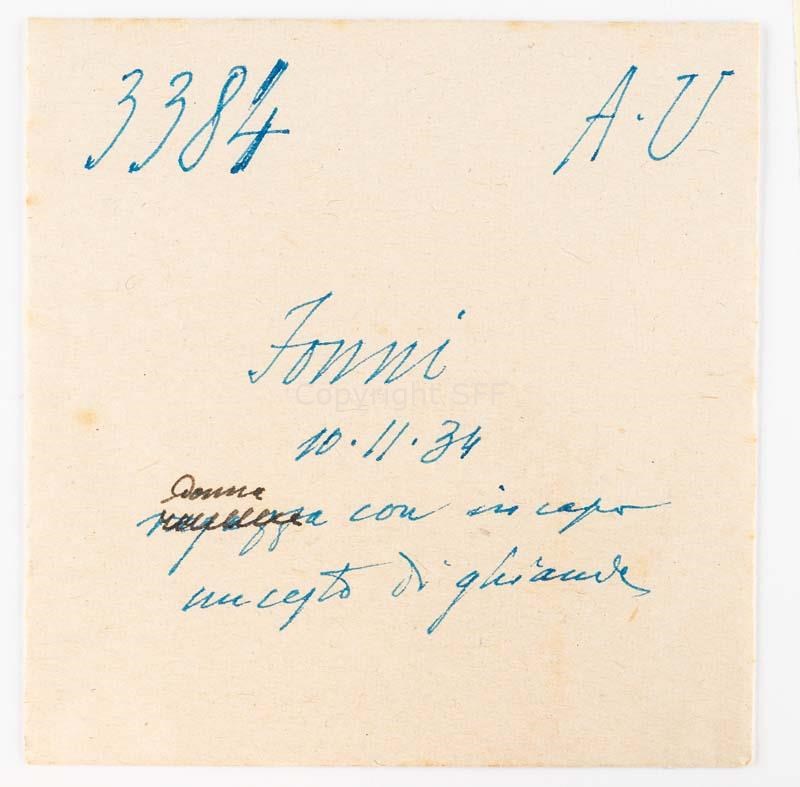 3384 A.U
Fonni
Copyright SFF
10.11.34
Donna
ragazza con in capo
un cesto di ghiande